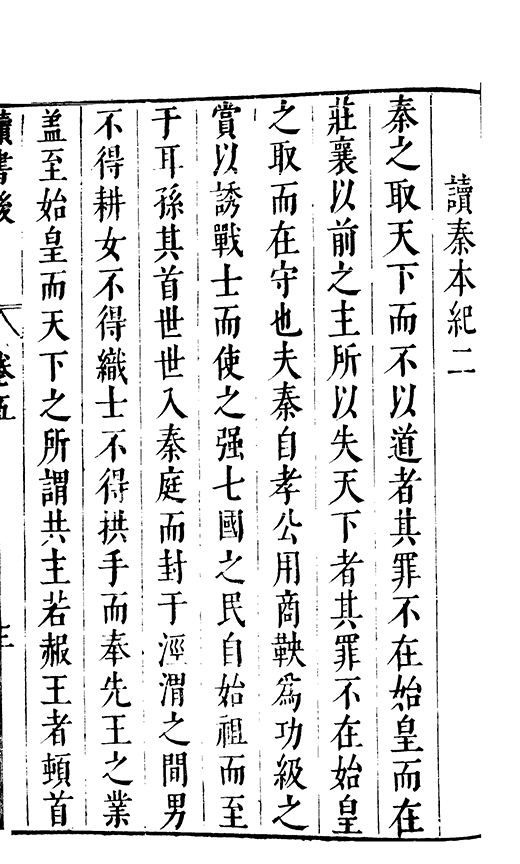 讀秦本紀二
秦之取天下而不以道者其罪不在始皇而在
莊襄以前之主所以失天下者其罪不在始皇
之取而在守也夫秦自孝公用商鞅爲功級之
賞以誘戰士而使之强七國之民自始祖而至
于耳孫其首世世入秦庭而封于涇渭之間男
不得耕女不得織士不得拱手而奉先王之業
盖至始皇而天下之所謂共主若赧王者頓首
讀書後
卷五